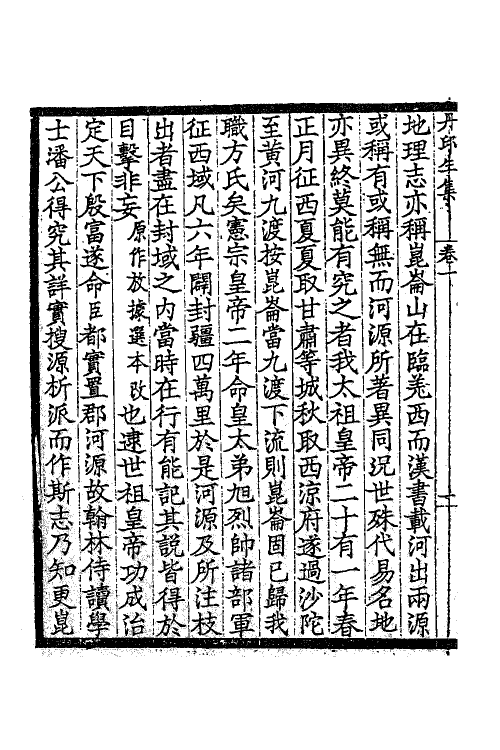 丹邱生集 卷一 十一
地理志亦稱崑崙山在臨羌西而漢書載河出兩源
或稱有或稱無而河源所著異同況世殊代易名地
亦異終莫能有究之者我太祖皇帝二十有一年春
正月征西夏夏取甘肅等城秋取西涼府遂過沙陀
至黃河九渡按崑崙當九渡下流則崑崙固已歸我
職方氏矣憲宗皇帝二年命皇太弟旭烈帥諸部軍
征西域凡六年闢封疆四萬里於是河源及所注枝
出者盡在封域之內當時在行有能記其說皆得於
目擊非妄原作放據選本改也逮世祖皇帝功成治
定天下殷富遂命臣都實置郡河源故翰林侍讀學
士潘公得究其詳實搜源析派而作斯志乃知更崑